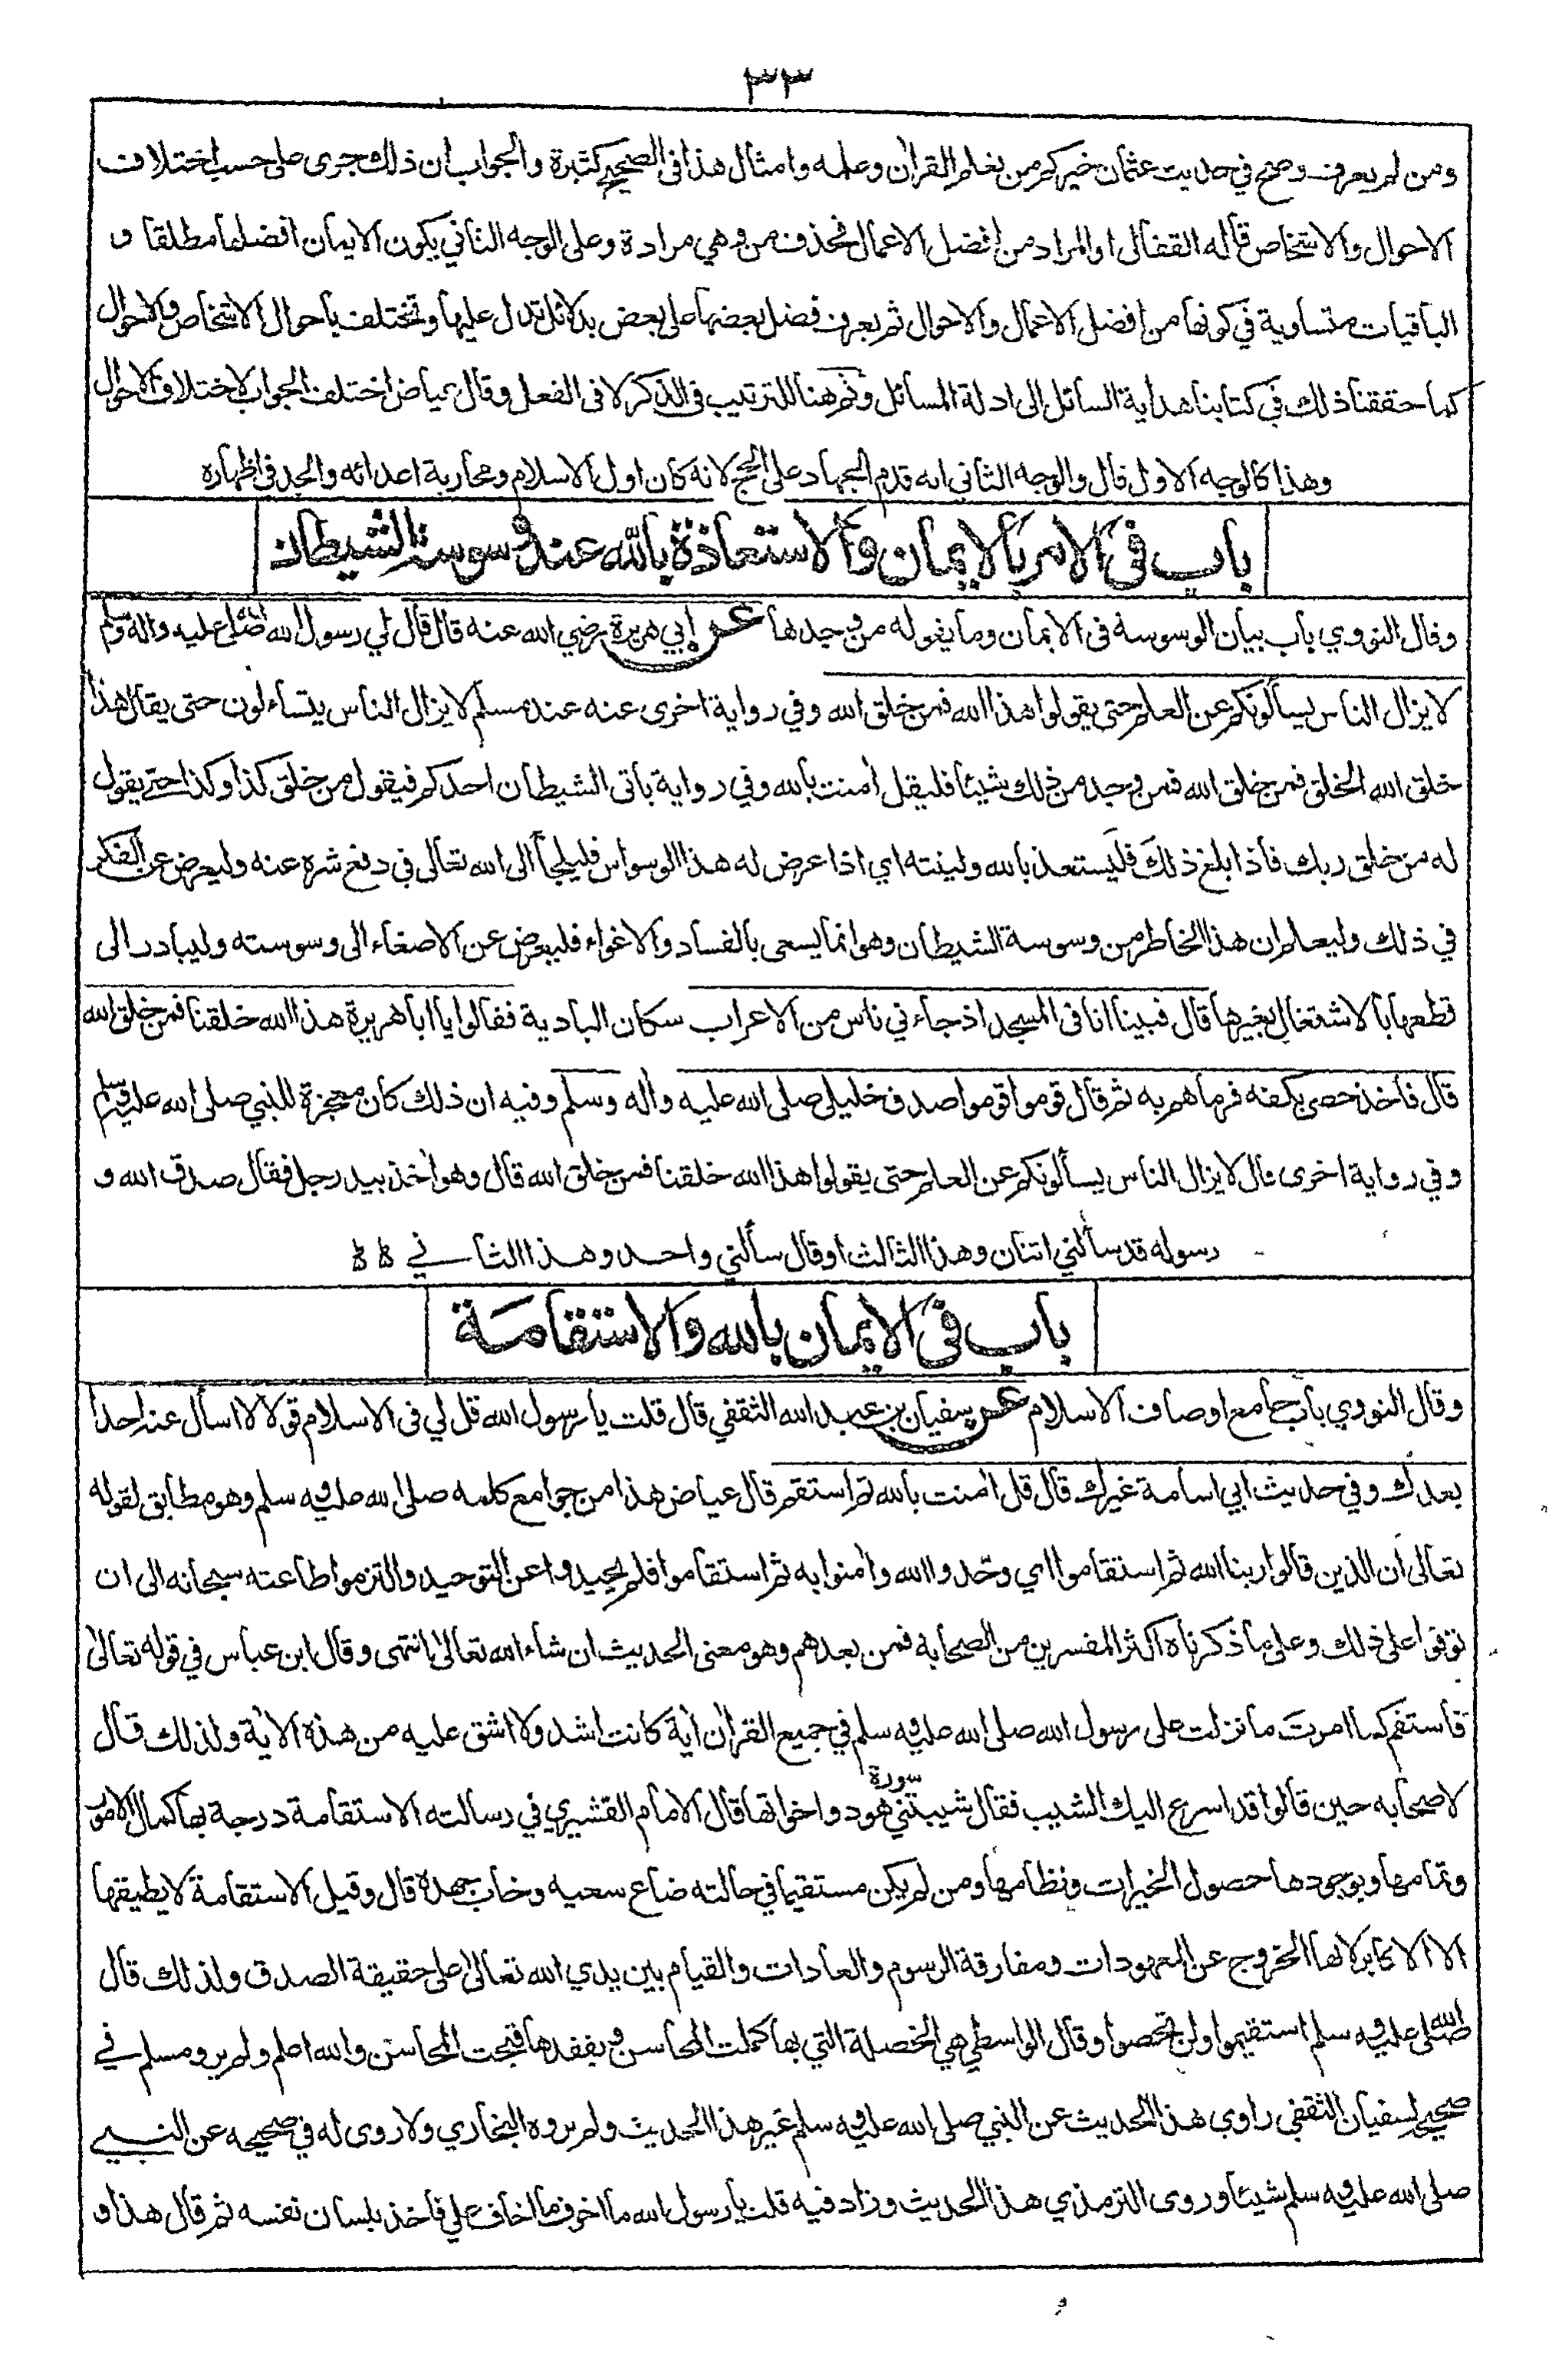 ٣٣
ومن لم يعرف وصح في حديث عثمان خيركم من تعلم القران وعلمه وامثال هذا فى الصحيح كثيرة والجواب ان ذلك جرى على حسب اختلاف
الاحوال والاشخاص قاله القفالى او المراد من افضل الاعمال فحذف من وهي مرادة وعلى الوجه الثاني يكون الايمان افضلها مطلقا و
الباقيات متساوية في كونها من افضل الاعمال والاحوال ثم يعرف فضل بعضها على بعض بدلائل تدل عليها وتختلف باحوال الاشخاص والاحوال
كما حققنا ذلك في كتابنا هداية السائل الى ادلة المسائل وثم هنا للترتيب فى الذكر لا فى الفعل وقال عياض اختلف الجواب لاختلاف الاحوال
وهذا كالوجه الاول قال والوجه الثانى انه قدم الجهاد على الحج لانه كان اول الاسلام ومحاربة اعدائه والجد فى اظهاره
باب فى الامر بالايمان والاستعاذة بالله عند وسوسة الشيطان
وقال النووي باب بيان الوسوسة فى الايمان وما يقوله من وجدها عن ابي هريرة رضي الله عنه قال قال لي رسول الله صلى الله عليه واله وسلم
لا يزال الناس يسألونكم عن العلم حتى يقولوا هذا الله فمن خلق الله وفي رواية اخرى عنه عند مسلم لا يزال الناس يتساءلون حتى يقال هذا
خلق الله الخلق فمن خلق الله فمن وجد من ذلك شيئا فليقل امنت بالله وفي رواية ياتى الشيطان احدكم فيقول من خلق كذا وكذا حتى يقول
له من خلق ربك فاذا بلغ ذلك فليستعذ بالله ولينته اي اذا عرض له هذا الوسواس فليلجأ الى الله تعالى في دفع شره عنه وليعرض عن الفكر
في ذلك وليعلم ان هذا الخاطر من وسوسة الشيطان وهو انما يسعى بالفساد والاغواء فليعرض عن الاصغاء الى وسوسته وليبادر الى
قطعها بالاشتغال بغيرها قال فبينا انا فى المسجد اذ جاءني ناس من الاعراب سكان البادية فقالوا يا ابا هريرة هذا الله خلقنا فمن خلق الله
قال فأخذ حصى بكفه فرماهم به ثم قال قوموا قوموا صدق خليلى صلى الله عليه واله وسلم وفيه ان ذلك كان معجزة للنبي صلى الله عليه وسلم
وفي رواية اخرى قال لا يزال الناس يسألونكم عن العلم حتى يقولوا هذا الله خلقنا فمن خلق الله قال وهو اخذ بيد رجل فقال صدق الله و
رسوله قد سألني اثنان وهذا الثالث او قال سألني واحد وهذا الثاني
باب فى الايمان بالله والاستقامة
وقال النووي باب جامع اوصاف الاسلام عن سفيان بن عبد الله الثقفي قال قلت يا رسول الله قل لي فى الاسلام قولا لا اسأل عنه احدا
بعدك وفي حديث ابي اسامة غيرك قال قل امنت بالله ثم استقم قال عياض هذا من جوامع كلمه صلى الله عليه وسلم وهو مطابق لقوله
تعالى ان الذين قالوا ربنا الله ثم استقاموا اي وحّدوا الله وامنوا به ثم استقاموا فلم يحيدوا عن التوحيد والتزموا طاعته سبحانه الى ان
توفوا على ذلك وعلى ما ذكرناه اكثر المفسرين من الصحابة فمن بعدهم وهو معنى الحديث ان شاء الله تعالى انتهى وقال ابن عباس في قوله تعالى
فاستقم كما امرت ما نزلت على رسول الله صلى الله عليه وسلم في جميع القران اية كانت اشد ولا اشق عليه من هذه الاية ولذلك قال
لاصحابه حين قالوا قد اسرع اليك الشيب فقال شيبتني سورة هود واخواتها قال الامام القشيري في رسالته الاستقامة درجة بها كمال الامور
وتمامها وبوجودها حصول الخيرات ونظامها ومن لم يكن مستقيما في حالته ضاع سعيه وخاب جهده قال وقيل الاستقامة لا يطيقها
الا الاكابر لانها الخروج عن المعهودات ومفارقة الرسوم والعادات والقيام بين يدي الله تعالى على حقيقة الصدق ولذلك قال
صلى الله عليه وسلم استقيموا ولن تحصوا وقال الواسطي هي الخصلة التي بها كملت المحاسن وبفقدها قبحت المحاسن والله اعلم ولم يرو مسلم في
صحيحه لسفيان الثقفي راوي هذا الحديث عن النبي صلى الله عليه وسلم غير هذا الحديث ولم يروه البخاري ولا روى له في صحيحه عن النبي
صلى الله عليه وسلم شيئا وروى الترمذي هذا الحديث وزاد فيه قلت يا رسول الله ما اخوف ما اخاف علي فأخذ بلسان نفسه ثم قال هذا و